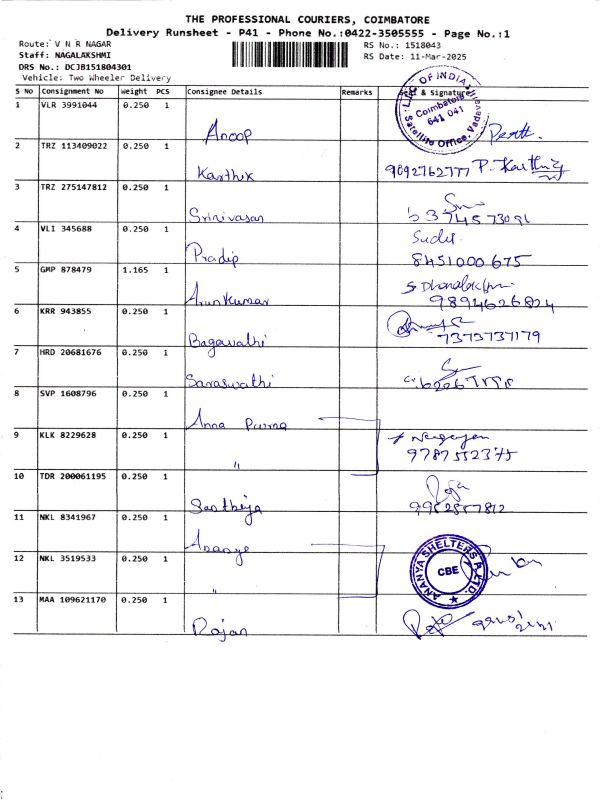 THE PROFESSIONAL COURIERS, COIMBATORE
Delivery Runsheet - P41 - Phone No.:0422-3505555 - Page No.:1
Route: V N R NAGAR RS No.: 1518043
Staff: NAGALAKSHMI RS Date: 11-Mar-2025
DRS No.: DCJB151804301
Vehicle: Two Wheeler Delivery
S No Consignment No Weight PCS Consignee Details Remarks & Signature
1 VLR 3991044 0.250 1
LIC OF INDIA
Coimbatore
641 041
Satellite Office
Anoop
2 TRZ 113409022 0.250 1
Karthik 9092762777 P. Karthi
3 TRZ 275147812 0.250 1
Srinivasan
4 VLI 345688 0.250 1
Pradip 8451000675
5 GMP 878479 1.165 1
Arunkumar 9894626824
6 KRR 943855 0.250 1
Bagavathi 7373737179
7 HRD 20681676 0.250 1
Saraswathi
8 SVP 1608796 0.250 1
Anna Purna
9 KLK 8229628 0.250 1
" 9787552375
10 TDR 200061195 0.250 1
11 NKL 8341967 0.250 1
12 NKL 3519533 0.250 1
"
ANANYA SHELTERS P. LTD.
CBE
13 MAA 109621170 0.250 1
Rajan